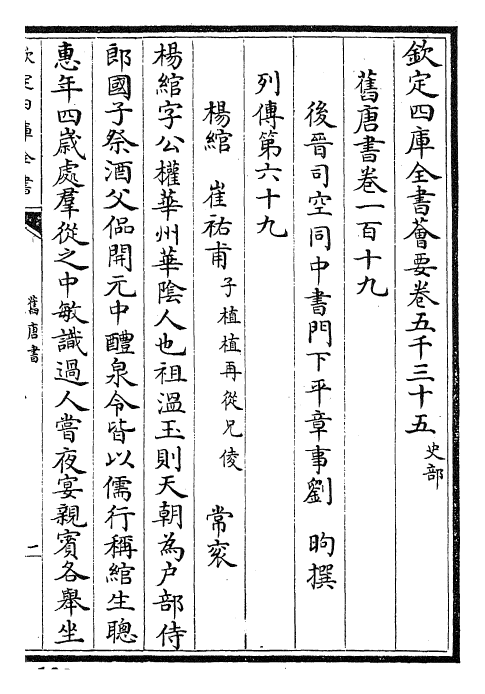 欽定四庫全書薈要卷五千三十五 史部
舊唐書卷一百十九
後晉司空同中書門下平章事劉 昫撰
列傳第六十九
楊綰 崔祐甫 子植 植再從兄倰 常衮
楊綰字公權華州華陰人也祖溫玉則天朝為户部侍
郎國子祭酒父侃開元中醴泉令皆以儒行稱綰生聰
惠年四歲處羣從之中敏識過人嘗夜宴親賓各舉坐
欽定四庫全書
舊唐書